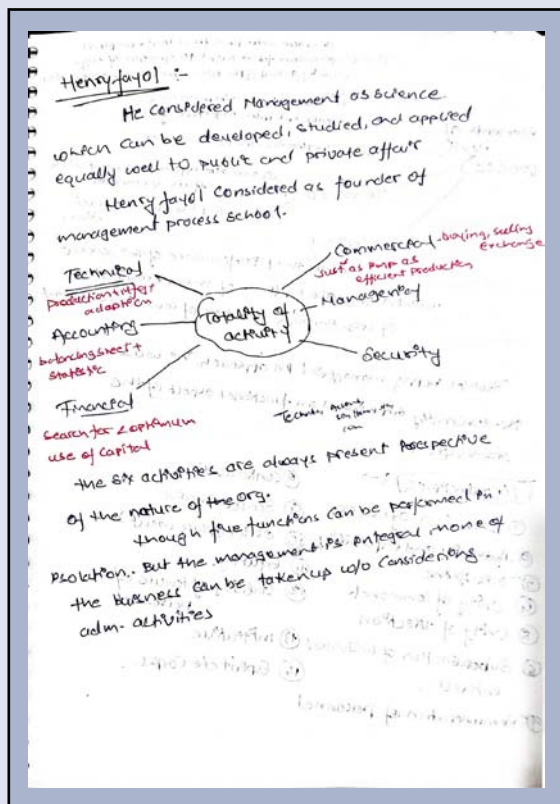 Henry fayol :-
He considered Management as science
which can be developed, studied, and applied
equally well to public and private affair
Henry fayol considered as founder of
management process school.
Technical
production + mfg +
adaption
Accounting
balancing sheet +
statestic
Financial
Search for & optimum
use of capital
Totality of
activity
Commercial - buying, selling
exchange
Just as imp as
efficient production
Managerial
Security
the six activities are always present
of the nature of the org.
though five functions can be performed in
isolation. But the management is integral none of
the business can be taken up w/o considering
adm. activities